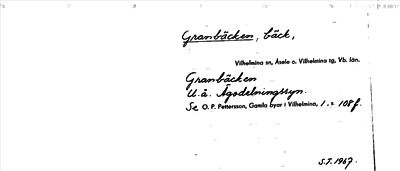 Granbäcken, bäck,
Vilhelmina sn, Åsele o. Vilhelmina tg, Vb. län.
Granbäcken
U.å. Ägodelningssyn.
Se O. P. Pettersson, Gamla byar i Vilhelmina, 1 s. 108f.
S.T. 1967.